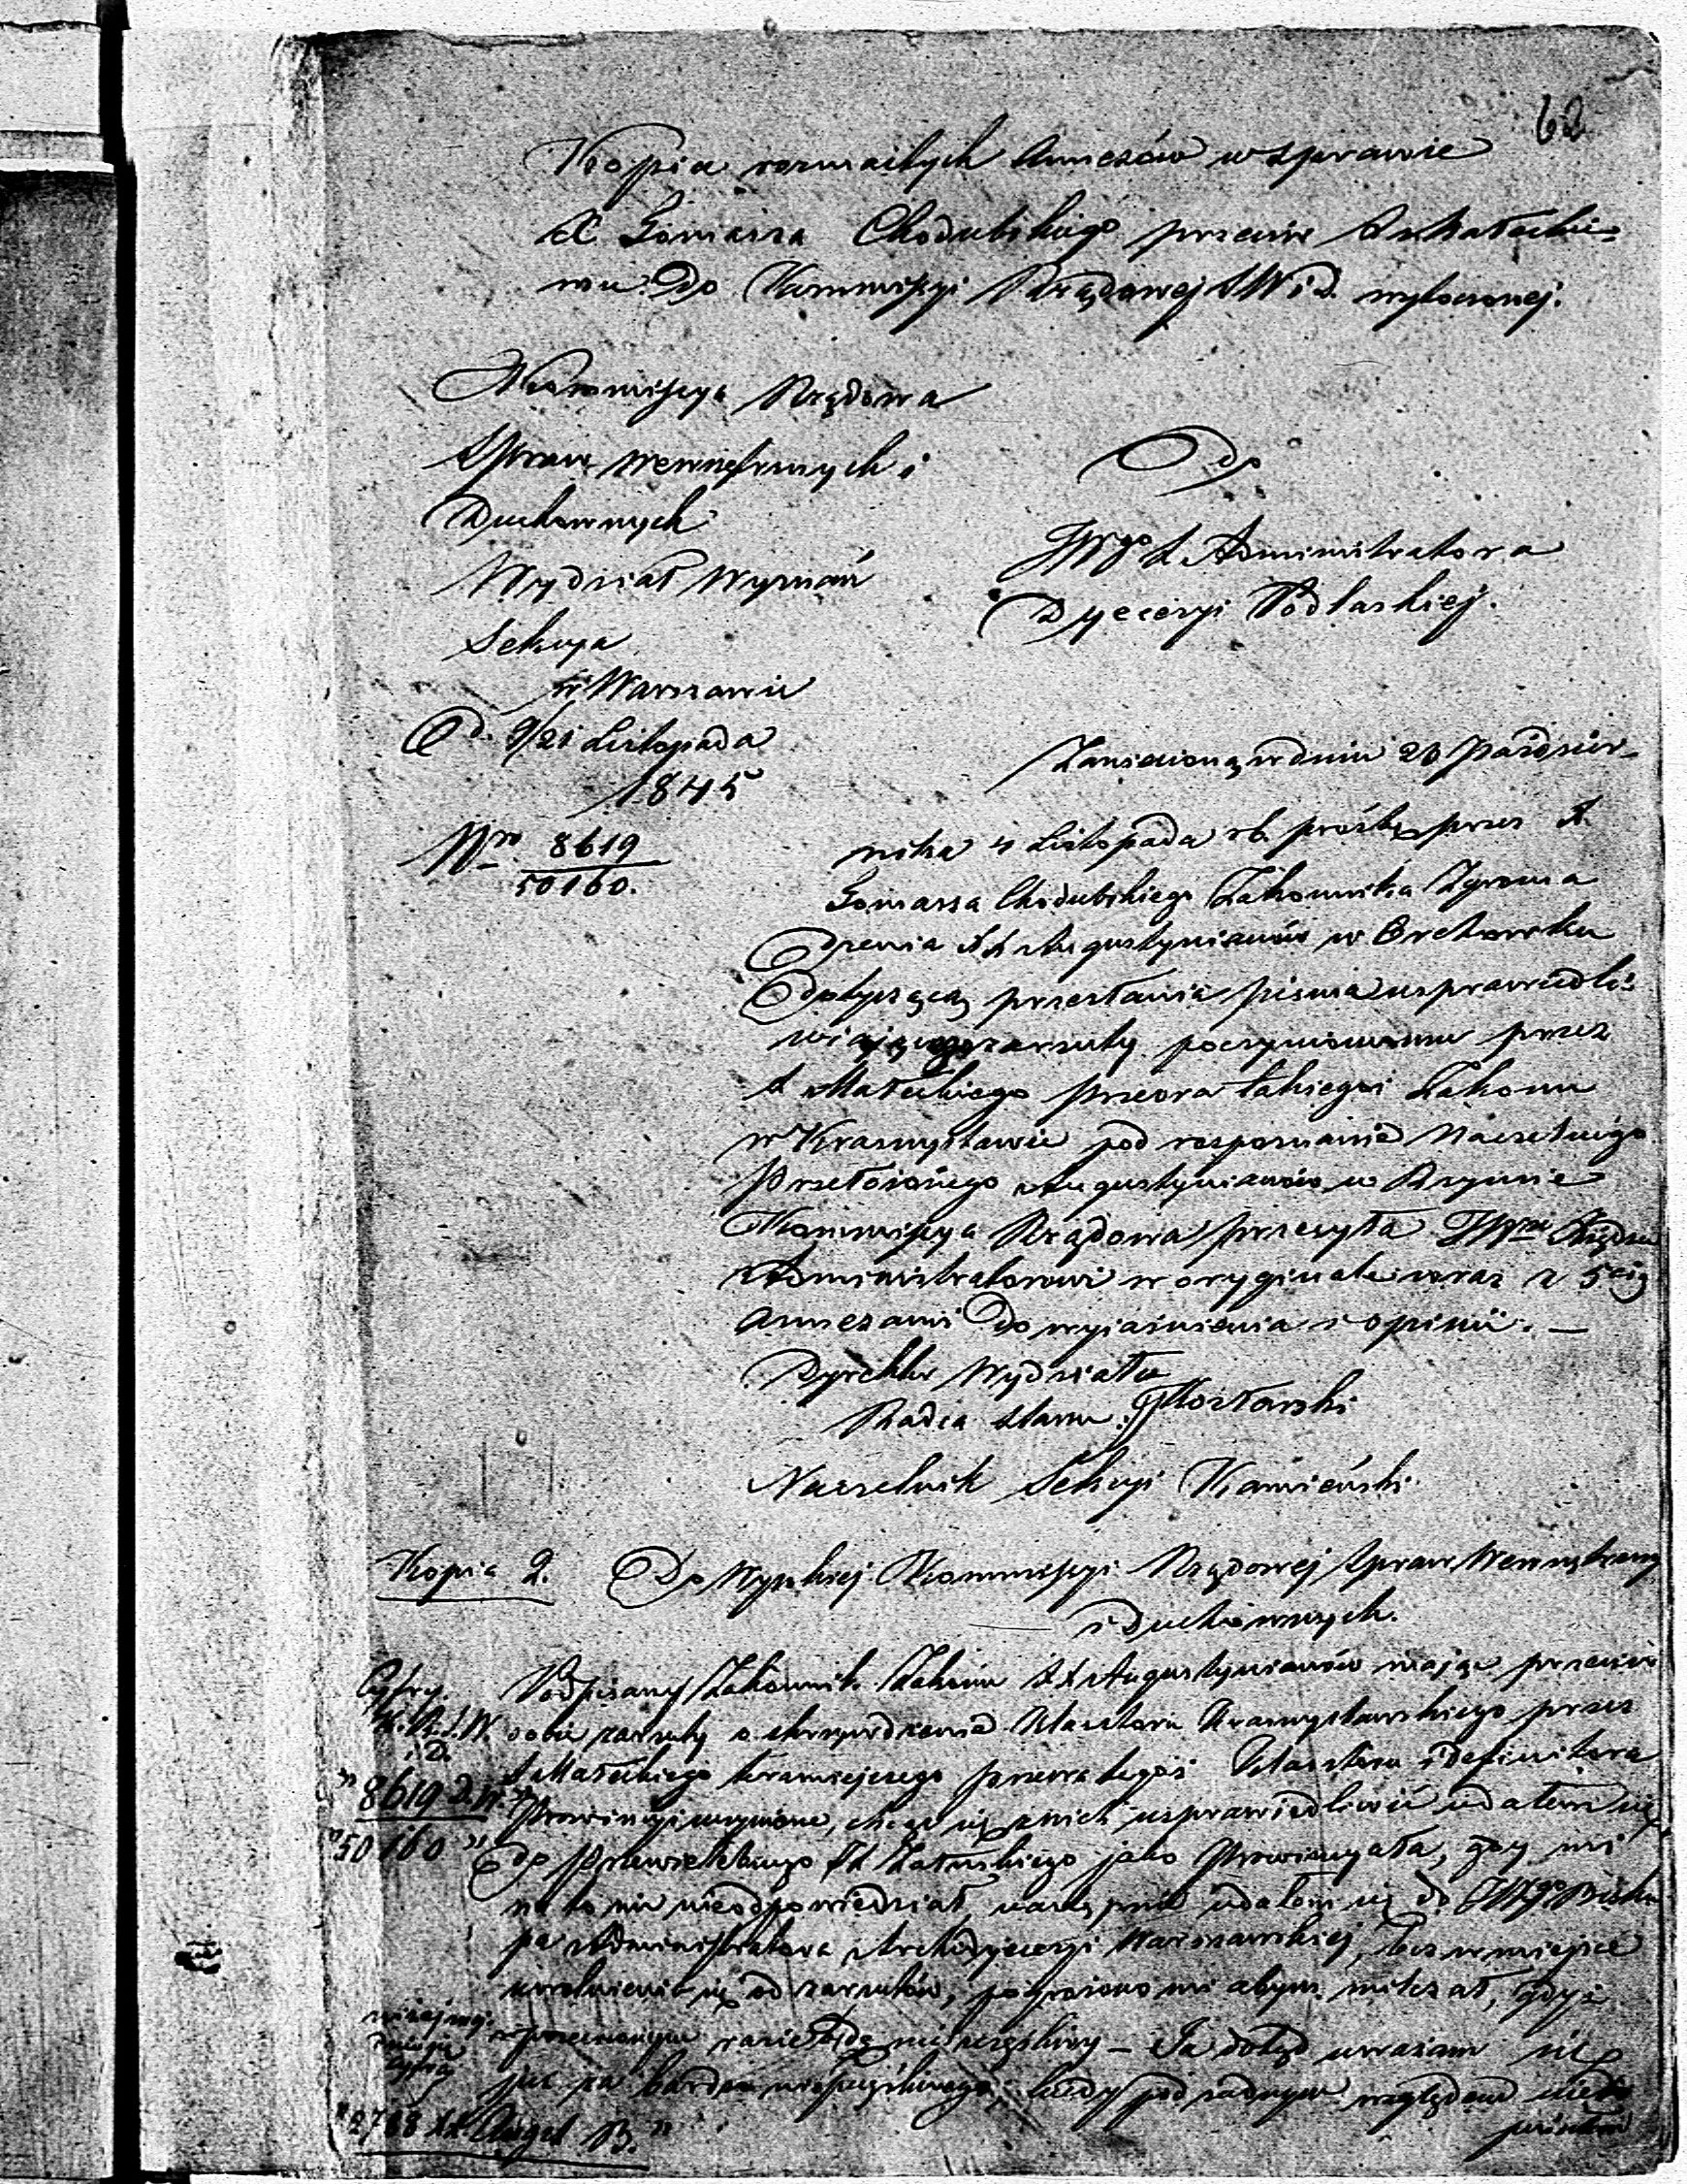 62
Kopia rozmaitych Annexów w sprawie
X Tomasza Chodubskiego przeciw X Małeckie-
mu. Do Kommissyi Rządowej S W i D. wytoczonej.
Kommissya Rządowa
Spraw Wewnętrznych i
Duchownych
Wydział Wyznań
Sekcya
w Warszawie
d. 9/21 Listopada
1845
Nro 8619
50160.
Do
JWgo X. Administratora
Dyecezyi Podlaskiej.
Zaniesioną w dniu 23 Paździer-
nika 4 Listopada rb. prośbę przez X.
Tomasza Chodubskiego Zakonnika Zgroma
dzenia XX Augustyanów w Orchowku
dotyczącą przesłania pisma usprawiedli-
wiającego zarzuty poczynionemu przez
X Małeckiego przeora takiegoż Zakonu
w Krasnymstawie pod rozpoznanie Naczelnego
Przełożonego Augustynianów w Rzymie
Kommissya Rządowa przesyła JW Księdzu
Administratorowi w oryginale wraz z 5cią
annexami do wyjaśnienia i opinii. —
Dyrektor Wydziału
Radca Stanu
Naczelnik Sekcyi Kamieński
Kopia 2. Do Wysokiej Kommissyi Rządowej Spraw Wewnętrzny
i Duchownych.
Cyfry.
K. R. S. W.
i D.
"8619 D. W.
"50160"
Podpisany Zakonnik Zakonu XX Augustynianów mając przeciw
sobie zarzuty o skrzywdzenie Klasztoru Krasnystawskiego przez
X Małeckiego teraniejszego przeora tegoż Klasztoru i Definitora
Prowincyi uczynione, chcąc się z nich usprawiedliwić udałem się
do Przewielebnego X Załuskiego jako Prowincyała, gdy mi
na to nic nieodpowiedział, następnie udałem się do JWgo Bisku
pa Administratora Archidyecezyi Warszawskiej, lecz w miejsce
uwolnienia się od zarzutów, pogrożono mi abym milczał, gdyż
w przeciwnym razie będę nieszczęśliwy — Ja dotąd uważam się
już za bardzo nieszczęśliwego, kiedy pod żadnym względem niedo
niżej
cyfra
"2768